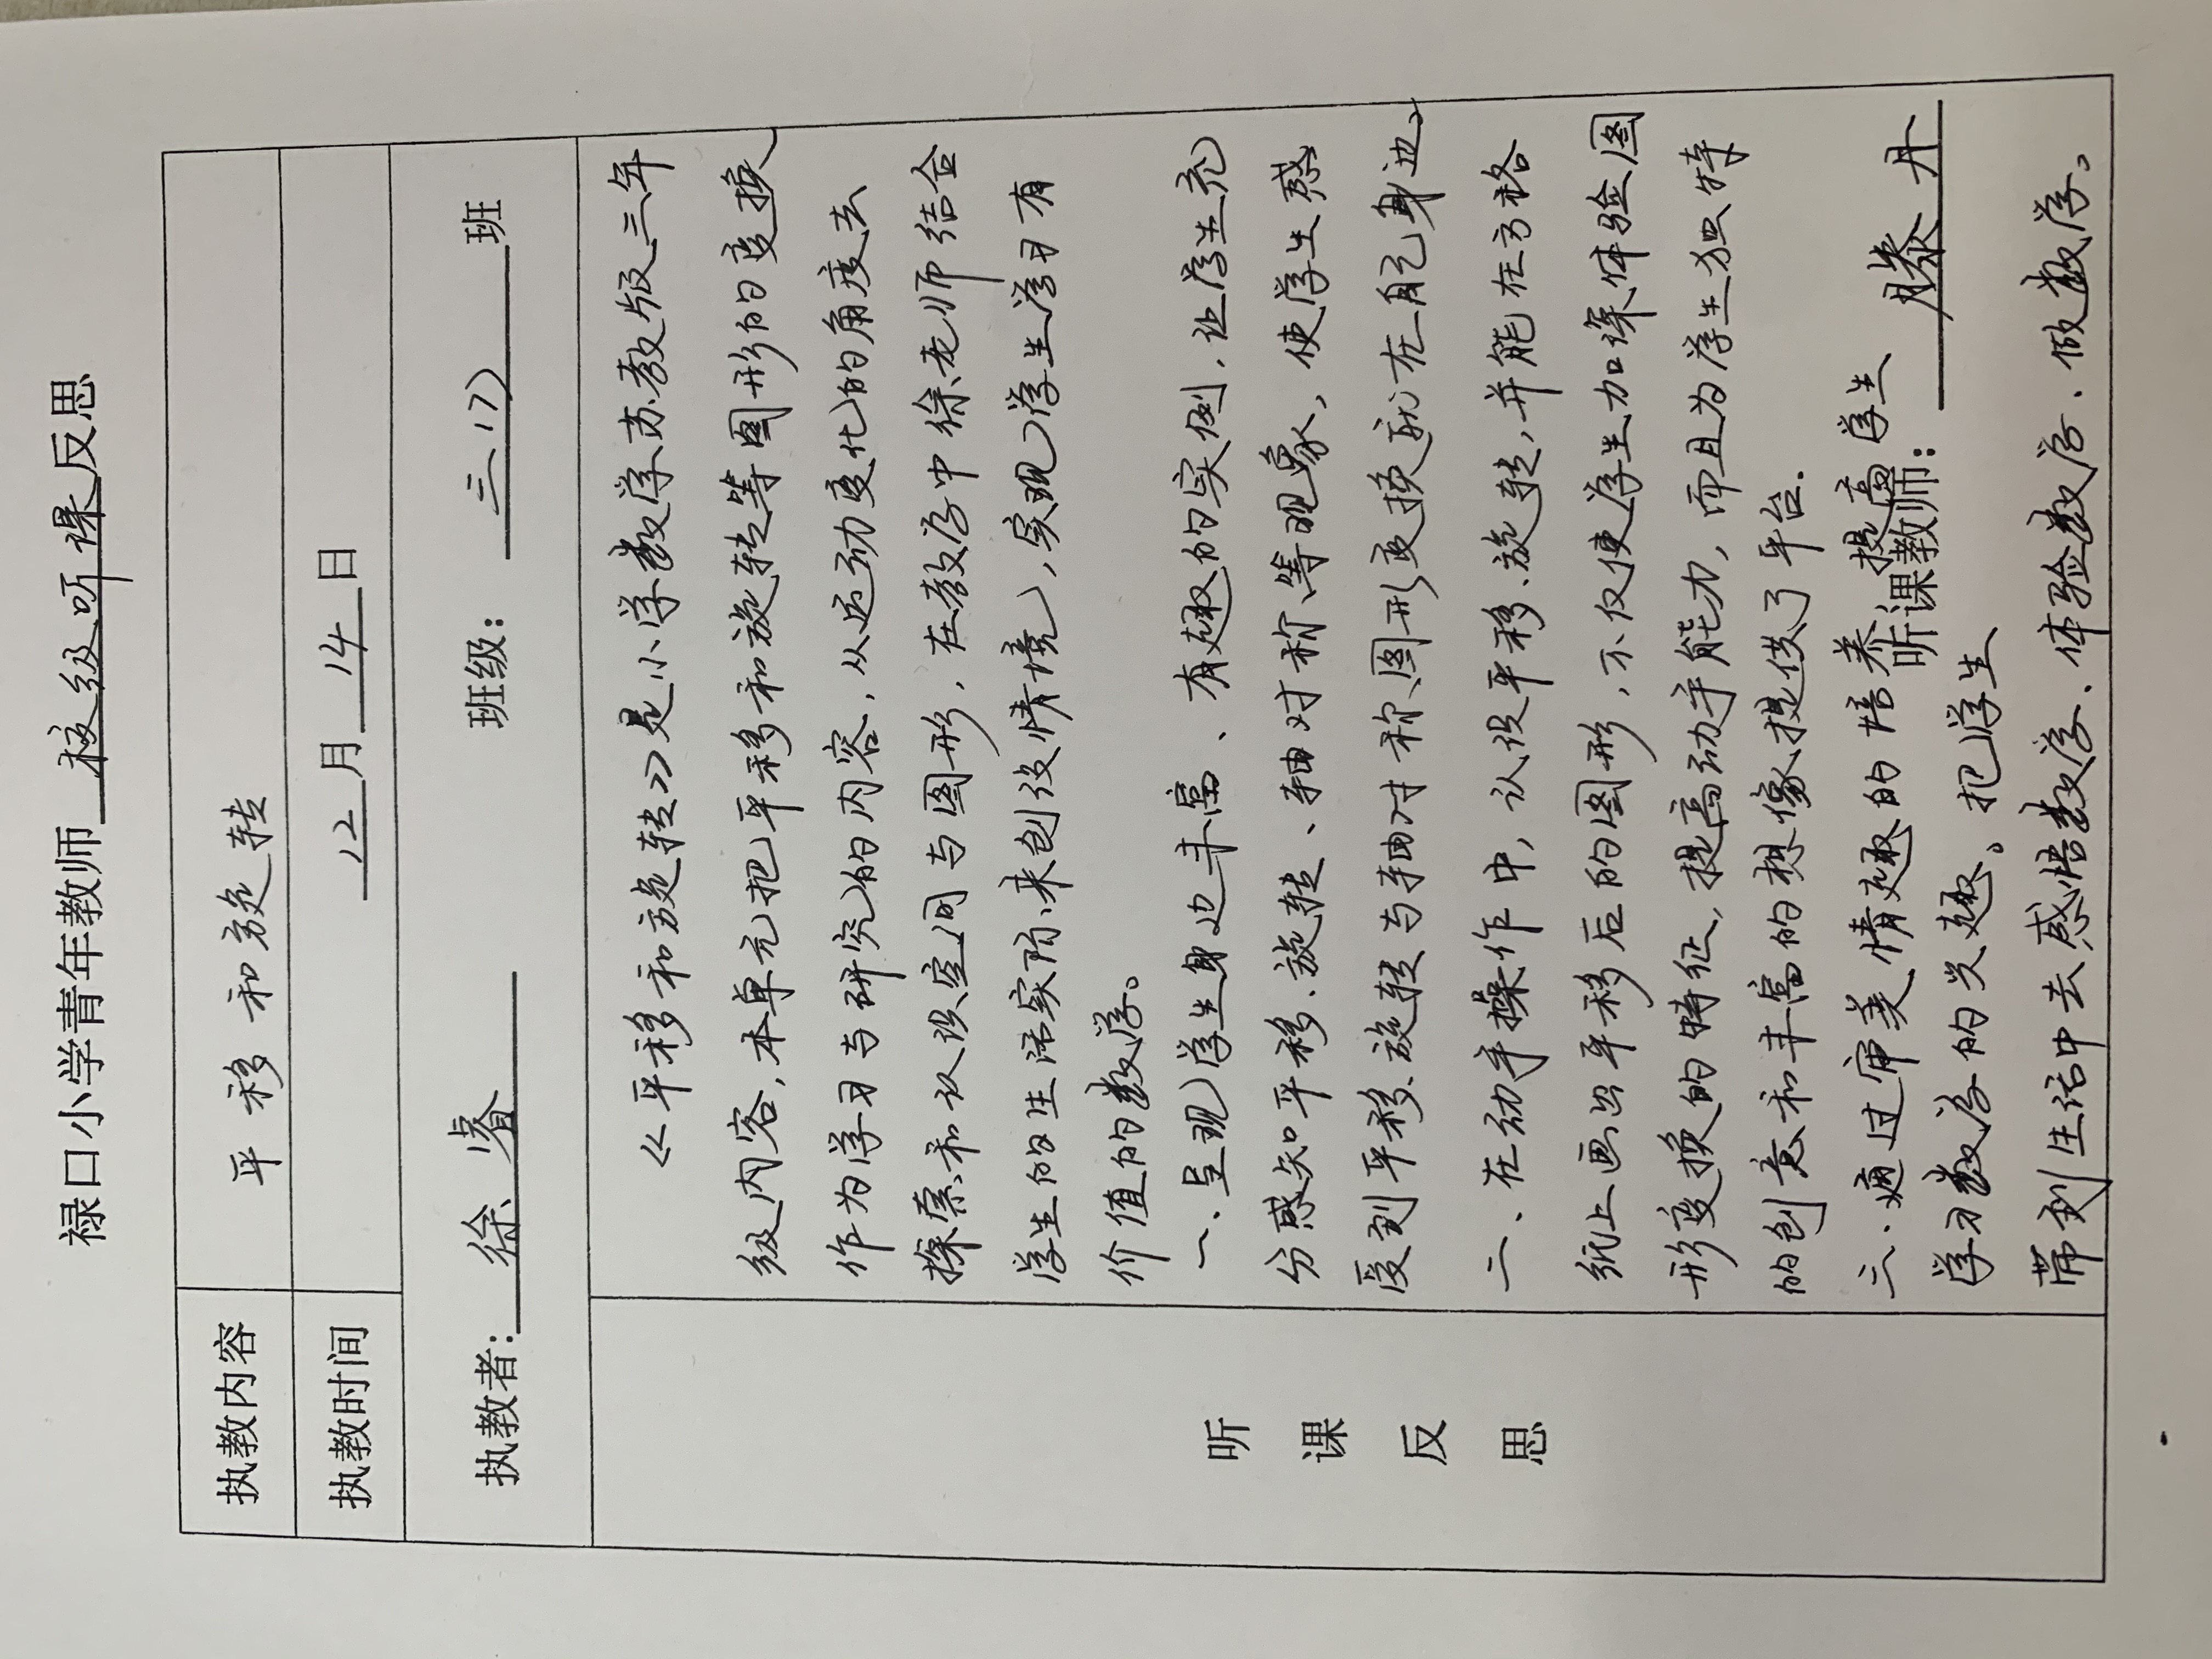 禄口小学青年教师 校级听课 反思
执教内容 平移和旋转
执教时间 12月14日
执教者：徐睿 班级：三（7）班
听课反思
《平移和旋转》是小学数学苏教版三年
级内容，本单元把平移和旋转等图形的变换
作为学习与研究的内容，从运动变化的角度去
探索和认识空间与图形，在教学中徐老师结合
学生的生活实际来创设情境，实现学生学习有
价值的数学。
一、呈现学生身边丰富、有趣的实例，让学生充
分感知平移、旋转、轴对称等现象，使学生感
受到平移、旋转与轴对称图形变换就在自己身边。
二、在动手操作中，认识平移、旋转，并能在方格
纸上画出平移后的图形，不仅使学生加深体验图
形变换的特征，提高动手能力，而且为学生独特
的创意和丰富的想像提供了平台.
三、通过审美情趣的培养，提高学生
听课教师：滕丹
学习数学的兴趣。把学生
带到生活中去感悟数学、体验数学、做数学。